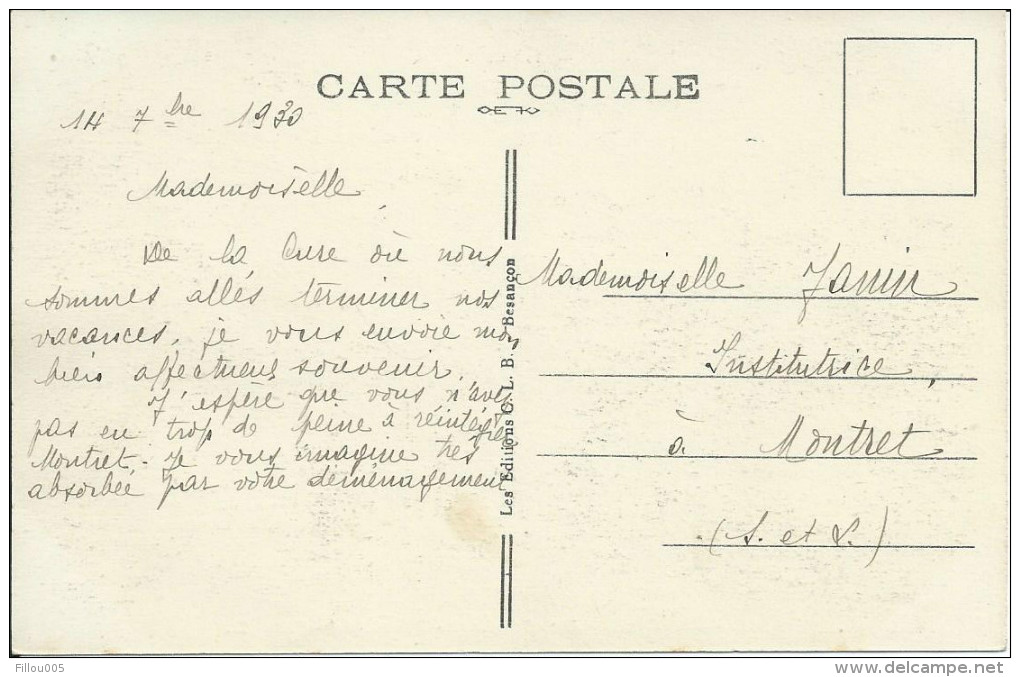 CARTE POSTALE
14 7bre 1930
Mademoiselle,
De la Cure où nous
sommes allés terminer nos
vacances, je vous envoie mon
bien affectueux souvenir.
J'espère que vous n'avez
pas eu trop de peine à réintégrer
Montret. Je vous imagine très
absorbée par votre déménagement
Les Editions C. L. B. Besançon
Mademoiselle Janin
Institutrice,
à Montret
(S. et L.)
Fillou005
www.delcampe.net